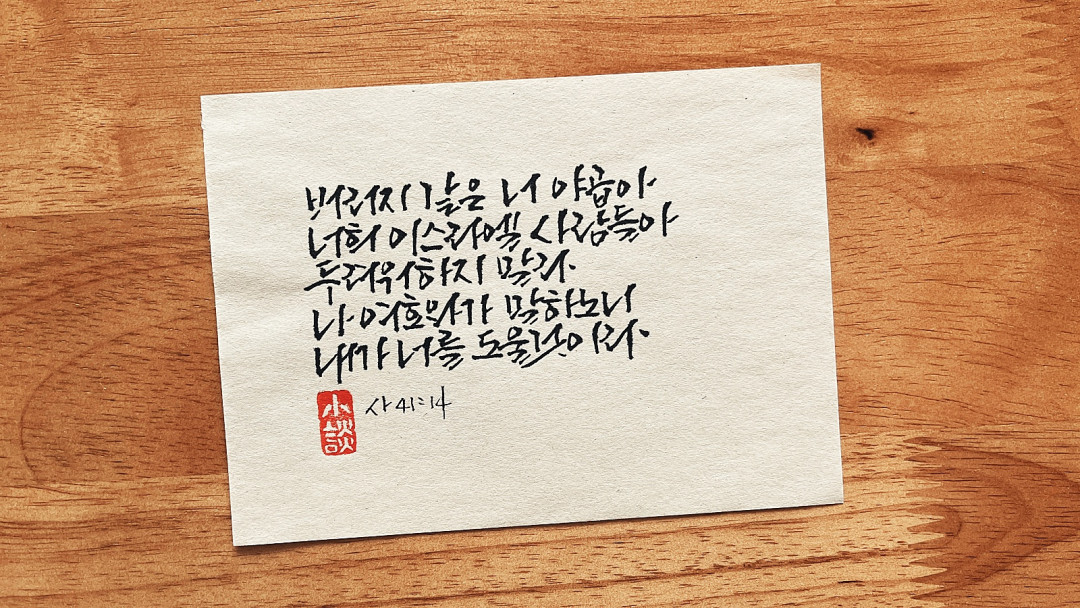 버러지 같은 너 야곱아
너희 이스라엘 사람들아
두려워하지 말라.
나 여호와가 말하노니
내가 너를 도울것이라.
사 41:14
小談